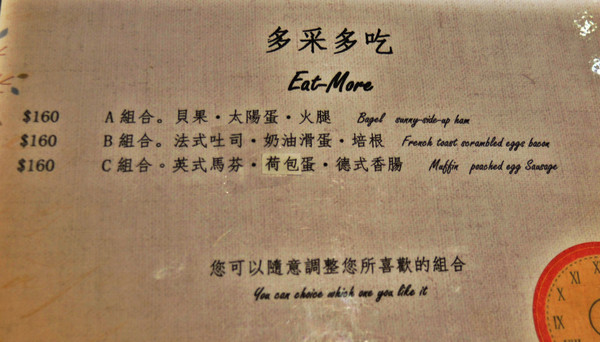 多采多吃
Eat-More
$160 A組合。貝果・太陽蛋・火腿 Bagel sunny-side-up ham
$160 B組合。法式吐司・奶油滑蛋・培根 French toast scrambled eggs bacon
$160 C組合。英式馬芬・荷包蛋・德式香腸 Muffin poached egg Sausage
您可以隨意調整您所喜歡的組合
You can choice which one you like it
XI
X
IX